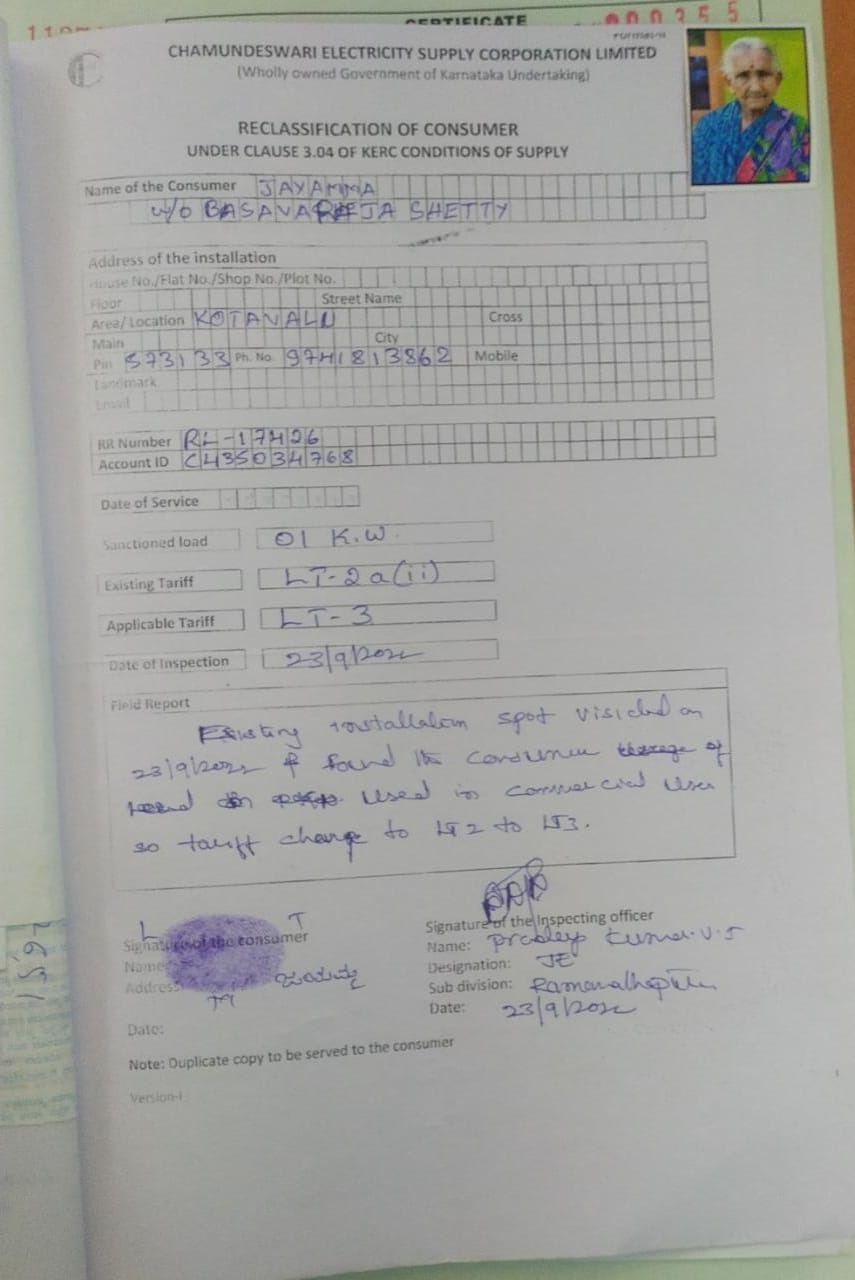 CERTIFICATE
000355
CHAMUNDESWARI ELECTRICITY SUPPLY CORPORATION LIMITED
(Wholly owned Government of Karnataka Undertaking)
RECLASSIFICATION OF CONSUMER
UNDER CLAUSE 3.04 OF KERC CONDITIONS OF SUPPLY
Name of the Consumer JAYAMMA
W/O BASAVARAJA SHETTY
Address of the installation
House No./Flat No./Shop No./Plot No.
Floor Street Name
Area/Location KOTAVALU Cross
Main City
Pin 573133 Ph. No. 9741813862 Mobile
Landmark
Email
RR Number RL-17426
Account ID C435034768
Date of Service
Sanctioned load 01 K.W.
Existing Tariff LT-2a(ii)
Applicable Tariff LT-3
Date of Inspection 23/9/2022
Field Report
Existing installation spot visicted on
23/9/2022 & found the consumer of
used in commercial user
so tariff change to LT2 to LT3.
L T
Signature of the consumer
Name:
Address: ಜಯಮ್ಮ
M
Date:
Signature of the Inspecting officer
Name: Pradeep Kumar.V.J
Designation: JE
Sub division: Ramanathapura
Date: 23/9/2022
Note: Duplicate copy to be served to the consumer
Version-I